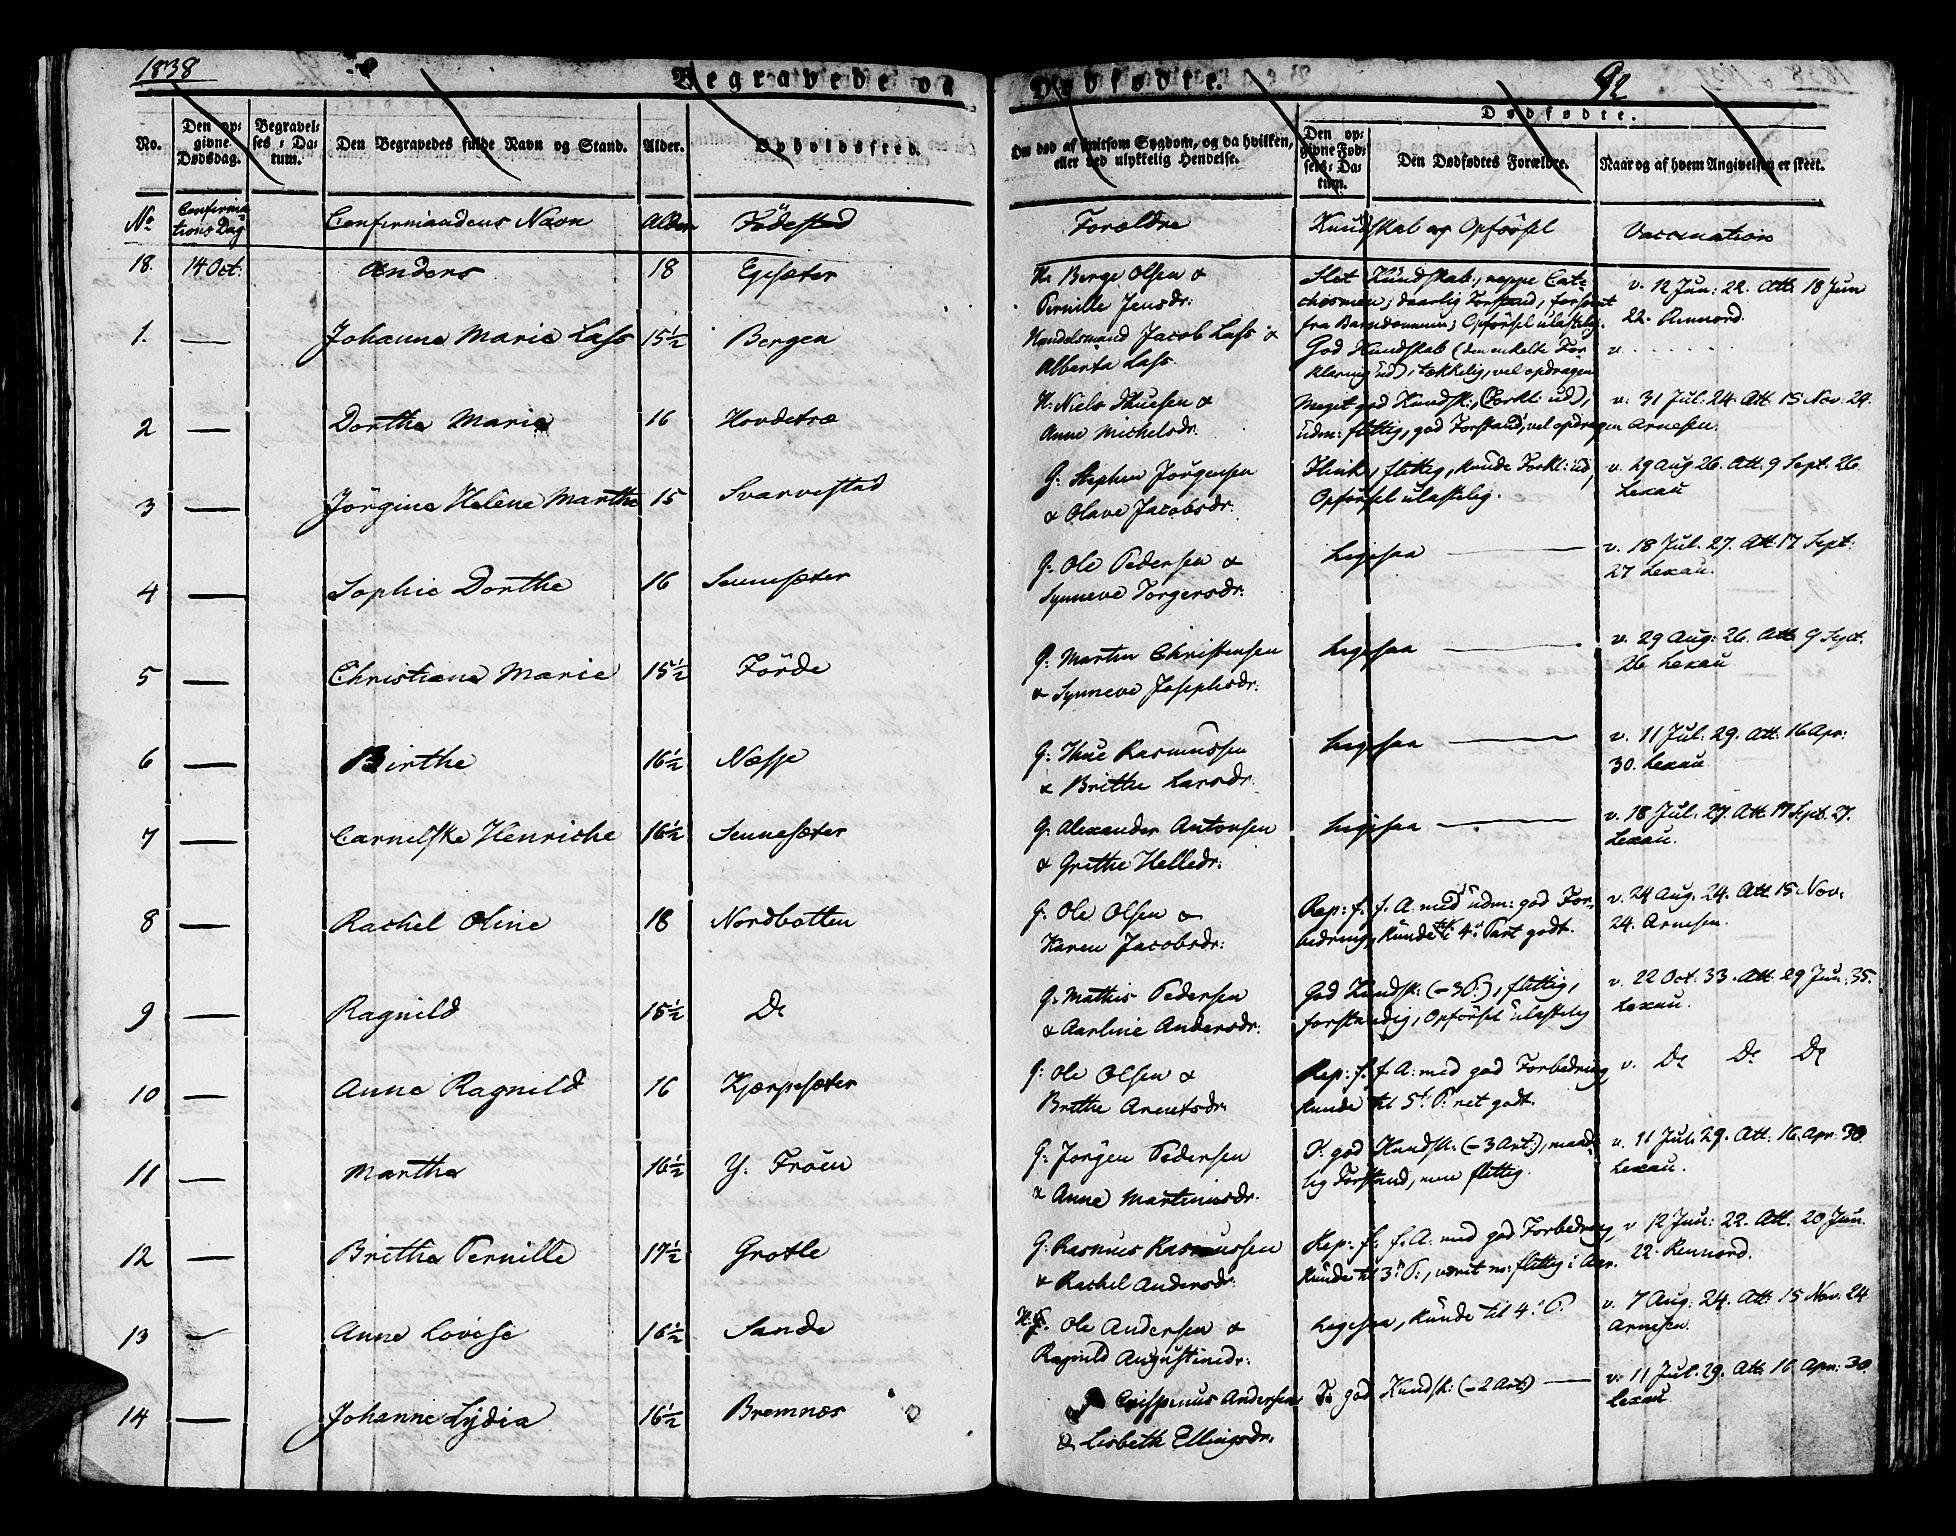 1838
Begravede og Dødfødte.
92
No.
Den op-
givne
Dødsdag.
Begravel-
ses-Da-
tum.
Den Begravedes fulde Navn og Stand.
Alder.
Opholdssted.
Om død af smitsom Sygdom, og da hvilken,
eller ved ulykkelig Hendelse.
Dødfødte.
Den op-
givne Fød-
sels-Da-
tum.
Den Dødfødtes Forældre.
Naar og af hvem Angivelsen er skeet.
No Confirma-
tions Dag Confirmandens Navn Alder Födested Forældre Kundskab og Opförsel Vaccination
18. 14 Oct: Anders 18 Egesæter H: Berge Olsen &
Pernille Jensdr:
Slet Kundskab, neppe Cat-
chesmen; daarlig Forstand, forsömt
fra Barndommen; Opförsel ulastelig.
v. 12 Jun: 22. Att. 18 Jun
22. Rennord.
1. — Johanne Marie Lass 15½ Bergen Handelsmand Jacob Lass &
Alberta Lass.
God Kundskab (den enkelte For
klaring ud), tækkelig, vel opdragen
v. . . . . . .
2 — Dorthe Marie 16 Hovdetræ H: Niels Thuesen &
Anne Michelsdr.
Meget god Kundsk:, (Forkl: ud),
udm: flittig, god Forstand, vel opdragen
v: 31 Jul: 24. Att. 15 Nov. 24.
Arnesen.
3 — Jörgine Helene Marthe 15 Svarvestad G: Stephen Jörgensen
& Olave Jacobsdr:
Flink, flittig, kunde Forkl: ud,
Opförsel ulastelig.
v. 29 Aug 26. Att. 9 Sept. 26.
Lexau
4 — Sophie Dorthe 16 Sennesæter G: Ole Pedersen &
Synneve Torgersdr:
Ligesaa —
v. 18 Jul. 27. Att. 17 Sept:
27 Lexau.
5 — Christiane Marie 15½ Förde G: Martin Christensen
& Synneve Josephsdr:
Ligesaa —
v. 29 Aug: 26. Att. 9 Sept.
26. Lexau
6 — Birthe 16½ Næsje G: Thue Rasmussen
& Brithe Larsdr:
Ligesaa —
v. 11 Jul: 29. Att. 16 Apr:
30. Lexau.
7 — Carnilske Henriche 16½ Sennesæter G: Alexander Antonsen
& Grethe Helledr:
Ligesaa —
v. 18 Jul: 27. Att. 17 Sept. 27.
Lexau.
8 — Rachel Oline 18 Nordbotten G: Ole Olsen &
Karen Jacobsdr:
Rep: f. f. A: med udm: god For-
bedring, kunde til 4. Part godt.
v. 24 Aug. 24. Att. 15 Nov:
24. Arnesen.
9 — Ragnild 15½ Do G: Mathis Pedersen
& Aarline Andersdr:
God Kundsk: (–3 P:), flittig,
forstandig, Opförsel ulastelig
v. 22 Oct: 33. Att. 29 Jun: 35.
Lexau.
10 — Anne Ragnild 16 Kjærpesæter G: Ole Olsen &
Brithe Arentsdr:
Rep: f. f. A: med god Forbedring,
kunde til 5. P: ret godt.
v. Do Do Do
11 — Marthe 16½ Y. Fröen G: Jörgen Pedersen
& Anne Martinusdr.
T. god Kundsk: (–3 Art:), maade-
lig Forstand, men flittig.
v. 11 Jul: 29. Att. 16. Apr: 30.
Lexau.
12 — Brithe Pernille 17½ Grotle G: Rasmus Rasmussen
& Rachel Andersdr:
Rep: f. f. A: med god Forbedring,
kunde til 3. P:, været m: flittig i Aar.
v 12 Jun: 22. Att. 20 Jun.
22. Rennord.
13 — Anne Lovise 16½ Sande Ole Andersen &
Ragnild Augustinedr:
Ligesaa, kunde til 4. P.
v. 7 Aug: 24. Att. 15 Nov. 24
Arnesen.
14 — Johanne Lydia 16½ Bremnæs Crispinus Andersen
& Lisbeth Ellingsdr:
T. god Kundsk: (–2 Art) —
v. 11 Jul. 29. Att. 16 Apr: 30.
Lexau